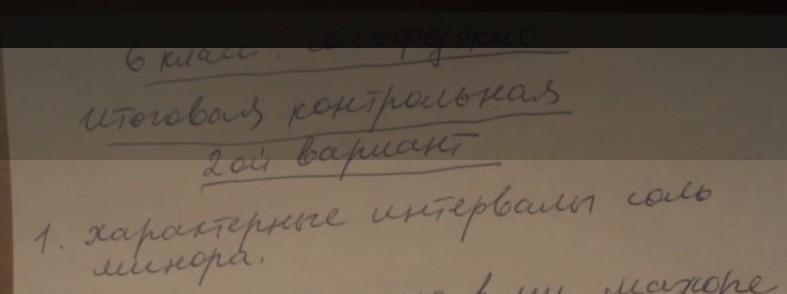 6 класс. сольфеджио.
Итоговая контрольная
2ой вариант
1. характерные интервалы соль
минора.
мажоре